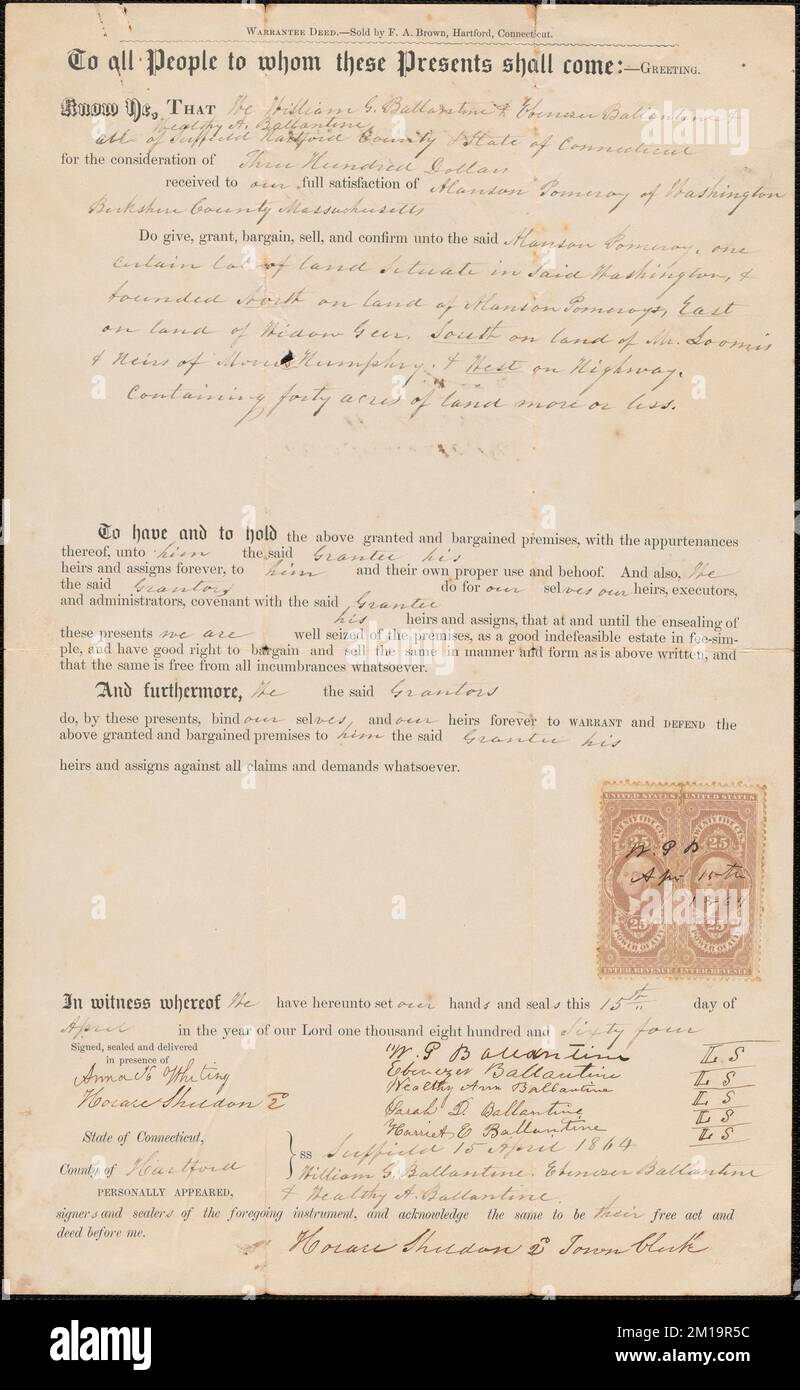 WARRANTEE DEED.—Sold by F. A. Brown, Hartford, Connecticut.
To all People to whom these Presents shall come:—GREETING.
Know Ye, THAT We William G. Ballantine & Ebenezer Ballantine &
Wealthy A. Ballantine
all of Suffield Hartford County & State of Connecticut
for the consideration of Three Hundred Dollars
received to our full satisfaction of Alanson Pomeroy of Washington
Berkshire County Massachusetts
Do give, grant, bargain, sell, and confirm unto the said Alanson Pomeroy, one
certain lot of land Situate in Said Washington, &
bounded North on land of Alanson Pomeroys, East
on land of Widow Geer, South on land of Mr. Loomis
& Heirs of Humphry. & West on Highway.
Containing forty acres of land more or less.
To have and to hold the above granted and bargained premises, with the appurtenances
thereof, unto him the said Grantee his
heirs and assigns forever, to him and their own proper use and behoof. And also, We
the said Grantors do for our selves our heirs, executors,
and administrators, covenant with the said Grantee
his heirs and assigns, that at and until the ensealing of
these presents we are well seized of the premises, as a good indefeasible estate in fee-sim-
ple, and have good right to bargain and sell the same in manner and form as is above written, and
that the same is free from all incumbrances whatsoever.
And furthermore, We the said Grantors
do, by these presents, bind our selves and our heirs forever to WARRANT and DEFEND the
above granted and bargained premises to him the said Grantee his
heirs and assigns against all claims and demands whatsoever.
UNITED STATES UNITED STATES
TWENTY FIVE CTS. TWENTY FIVE CTS.
25 25
W. P B
Apr 15th
1864
25 25
POWER OF AT'Y POWER OF AT'Y
INTER. REVENUE INTER. REVENUE
In witness whereof We have hereunto set our hands and seals this 15th day of
April in the year of our Lord one thousand eight hundred and Sixty four
Signed, sealed and delivered
in presence of
Anna H Whiting
Horace Sheldon 2d
W. P Ballantine L S
Ebenezer Ballantine L S
Wealthy Ann Ballantine L S
Sarah D. Ballantine L S
Harriet E Ballantine L S
State of Connecticut,
County of Hartford
PERSONALLY APPEARED,
ss Suffield 15 April 1864
William G. Ballantine. Ebenezer Ballantine
& Wealthy A. Ballantine
signers and sealers of the foregoing instrument, and acknowledge the same to be their free act and
deed before me.
Horace Sheldon 2d Town Clerk
alamy
alamy
alamy
alamy
Image ID: 2M19R5C
www.alamy.com